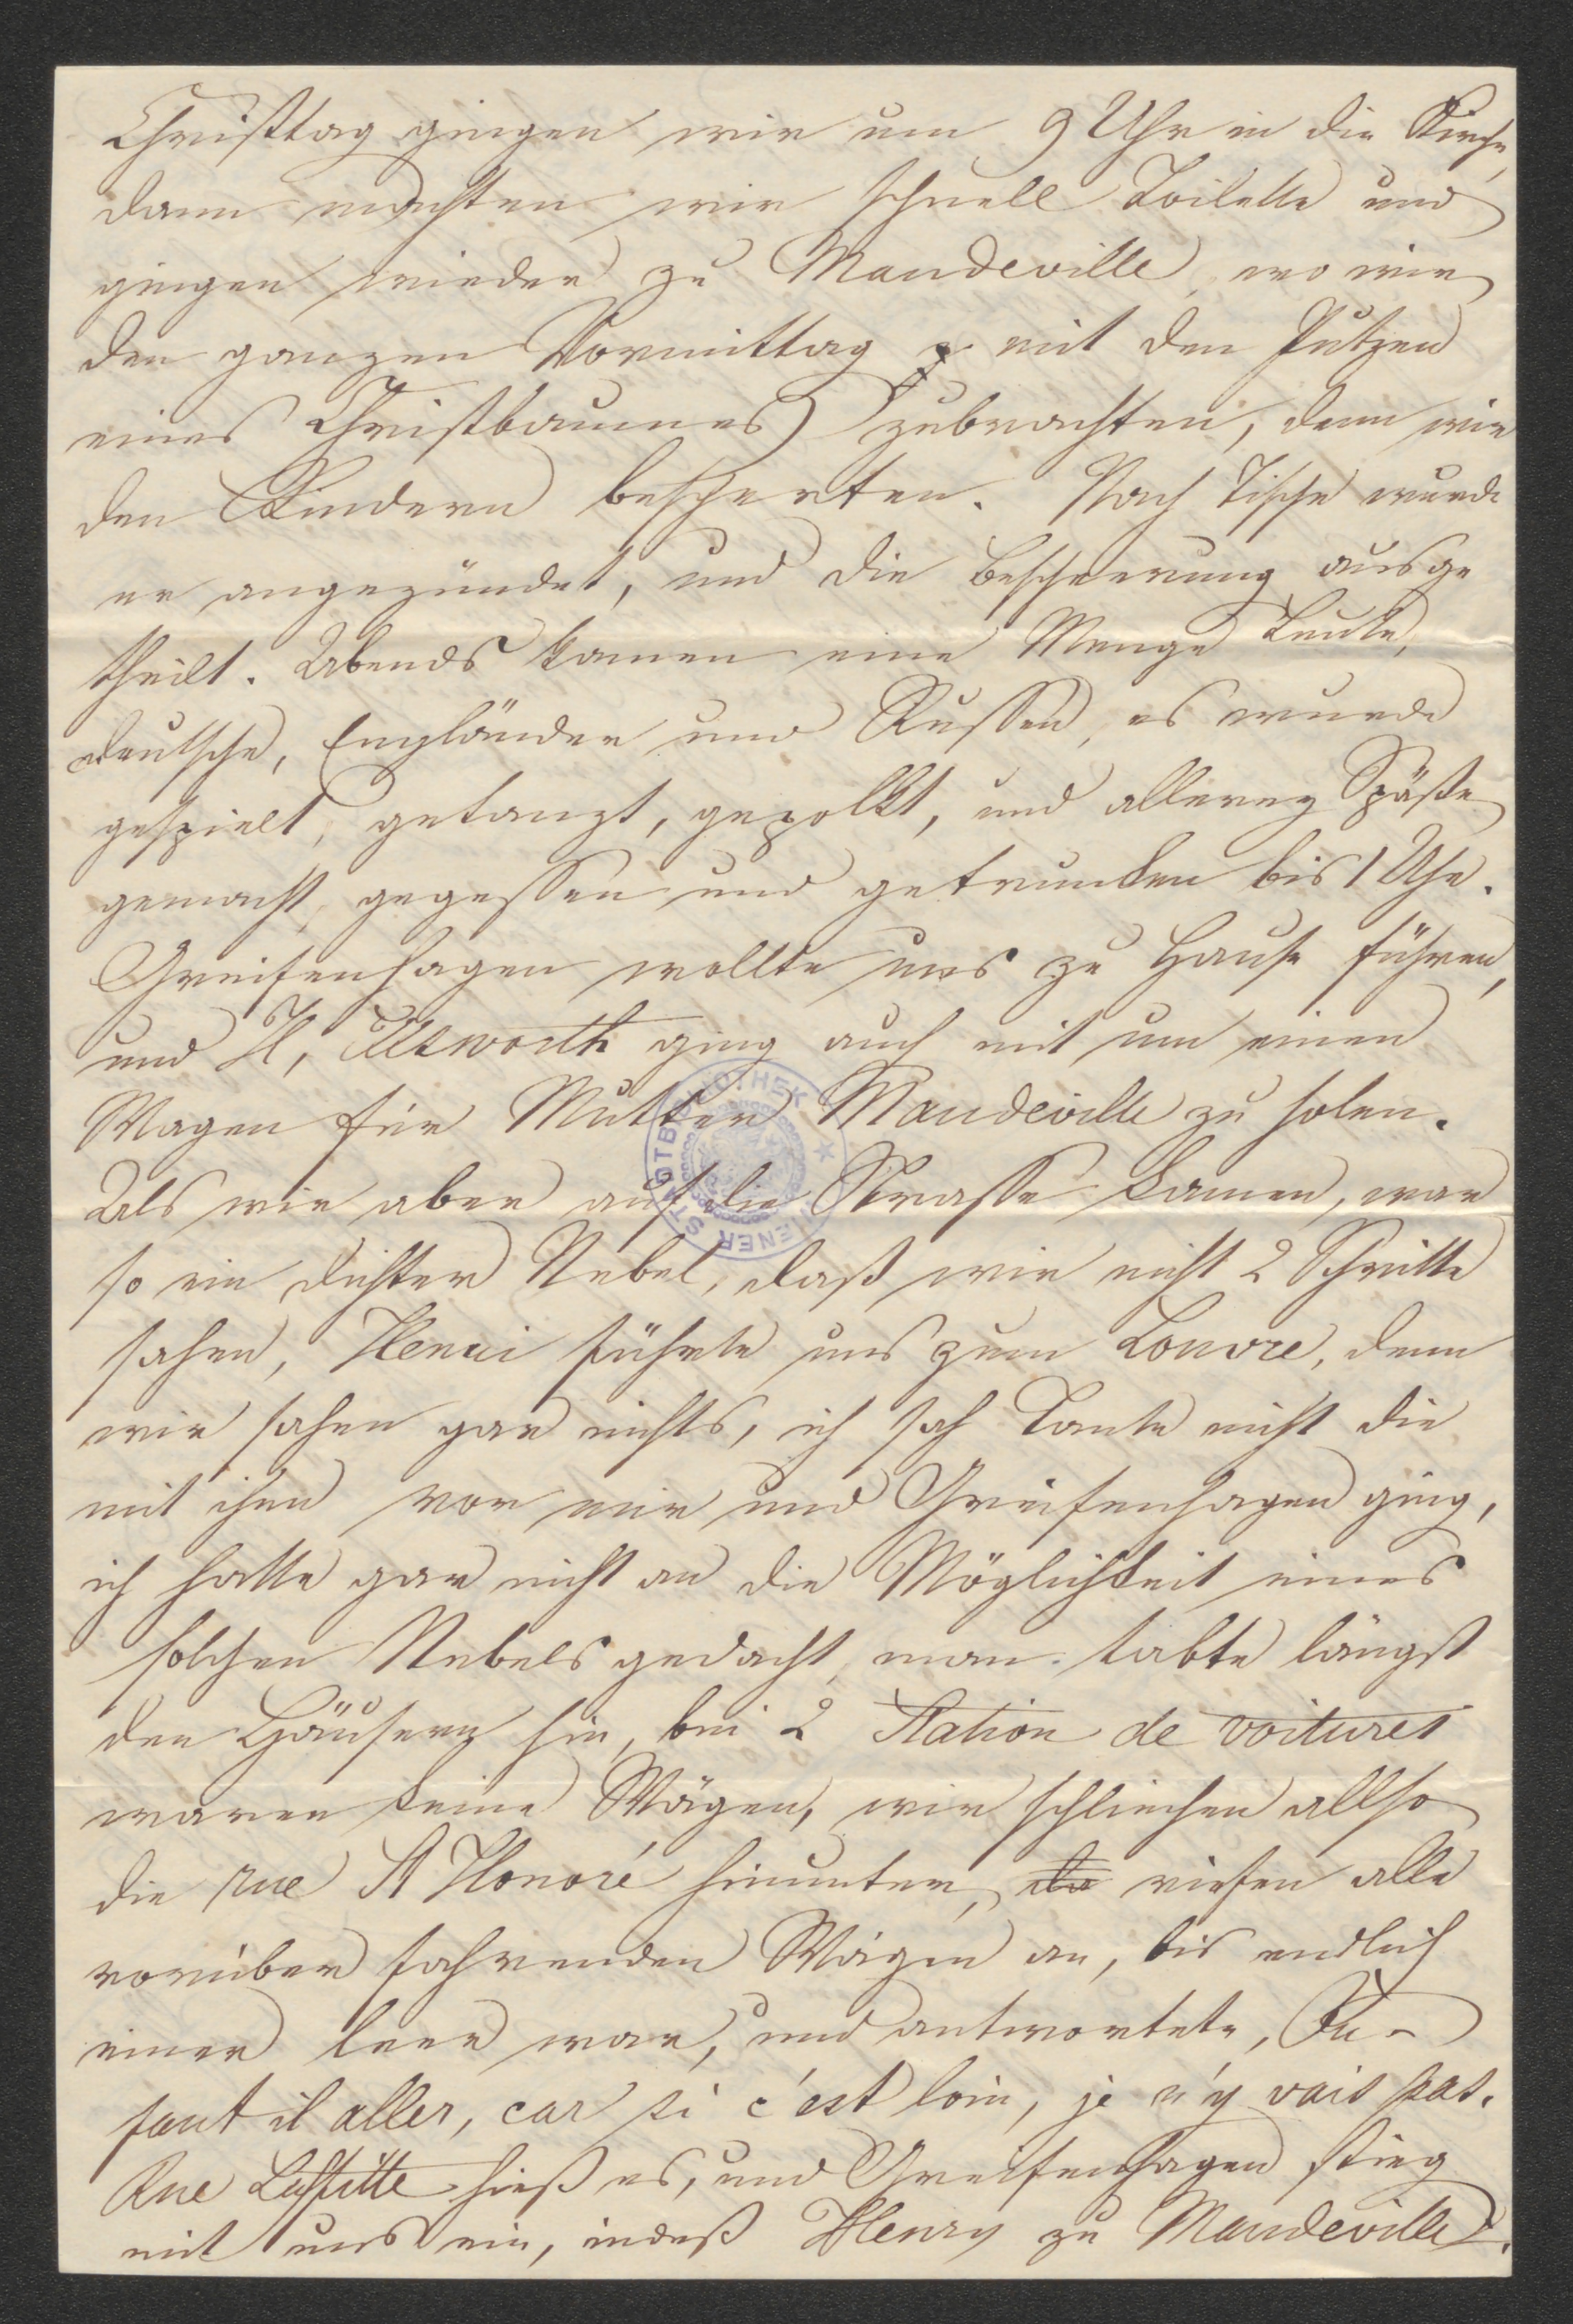 Christtag gingen wir um 9 Uhr in die Kirche,
dann machten wir schnell Toilette und
gingen wieder zu Mandeville, wo wir
den ganzen Vormittag mit den Putzen
eines Christbaumes zubrachten, denn wir
den Kindern bescherten. Nach Tische wurde
er angezündet, und die Bescherung ausge
theilt. Abends kamen eine Menge Leute,
deutsche, Engländer und Russen, es wurde
gespielt, getanzt, gepolkt, und allerey Späße
gemacht, gegessen und getrunken bis 1 Uhr.
Greifenhagen wollte uns zu Hause führen,
und H, ging auch mit um einen
Wagen für Mutter Mandeville zu holen.
Als wir aber auf die Strasse kamen, war
so ein dichter Nebel, daß wir nicht 2 Schritte
sahen, Henri führte uns zum Louvre, denn
wir sahen gar nichts, ich sah Tante nicht die
mit ihm vor mir und Greifenhagen ging,
ich hatte gar nicht an die Möglichkeit eines
solchen Nebels gedacht, man tabte längst
den Häusern hin, bei 2 Station de voitures
waren keine Wägen, wir schlichen allso
die rue St Honoré hinunter, riefen alle
vorüber fahrenden Wägen an, bis endlich
einer leer war, und antwortete, Ou-
faut il aller, car si c'est loin, je n'y vais pas.
Rue Laffitte hieß es, und Greifenhagen stieg
mit uns ein, indeß Henry zu Mandeville.
WIENER STADTBIBLIOTHEK